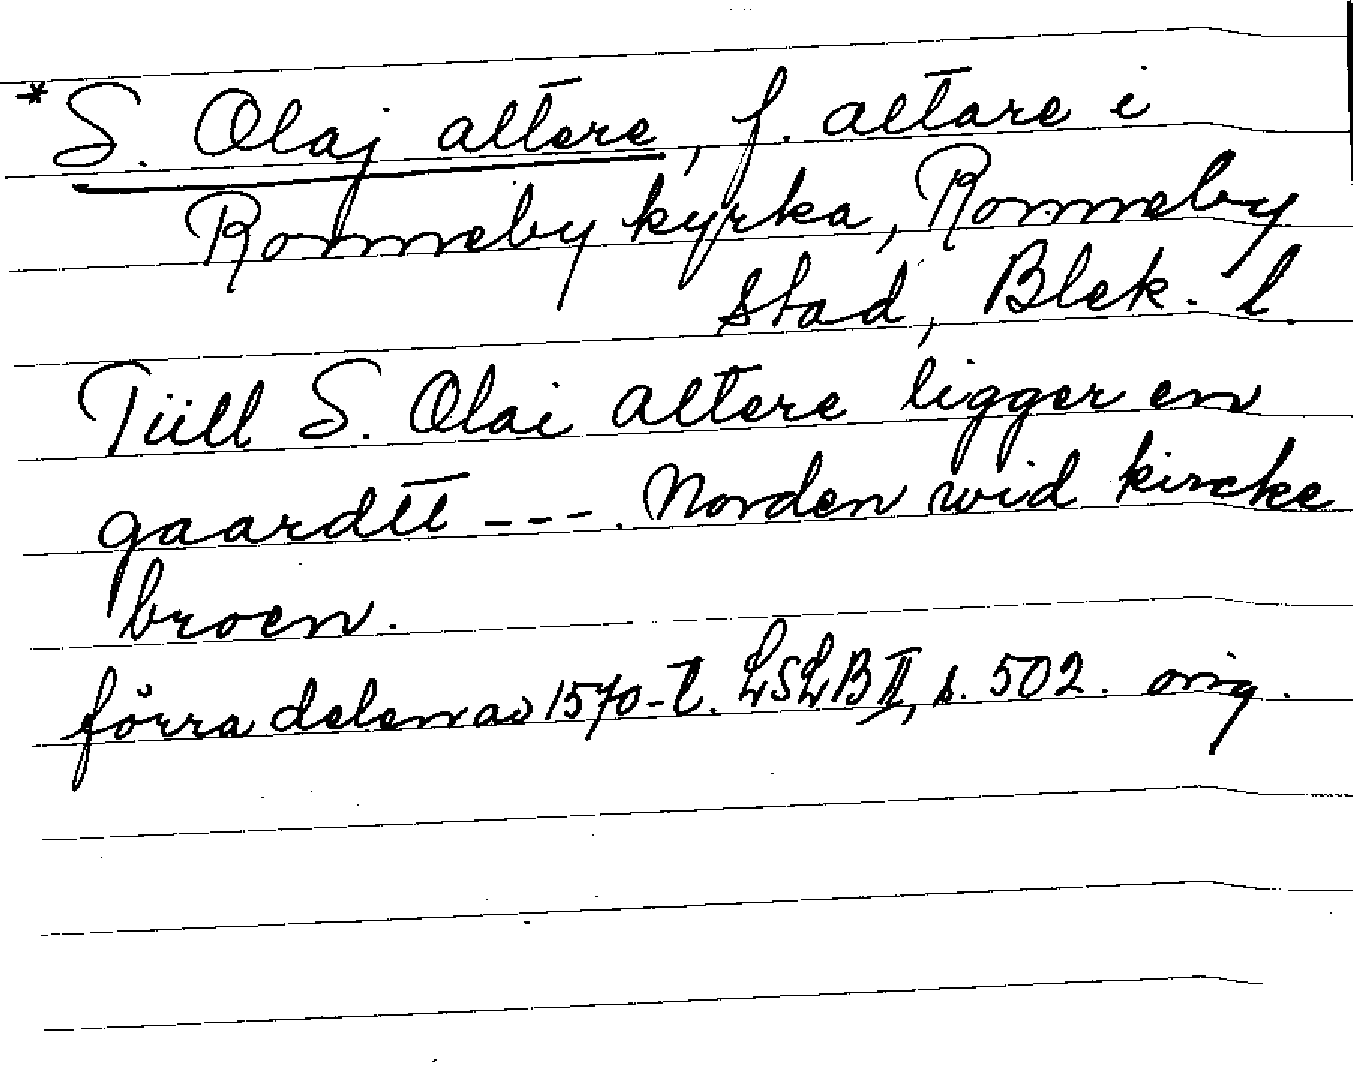 * S. Olaj altere, f. altare i
Ronneby kyrka, Ronneby
stad, Blek. l.
Tüll S. Olai altere ligger en
gaardtt ---. Norden wid kircke
broen.
förra delen av 1570-t. LSLB II, s. 502. orig.